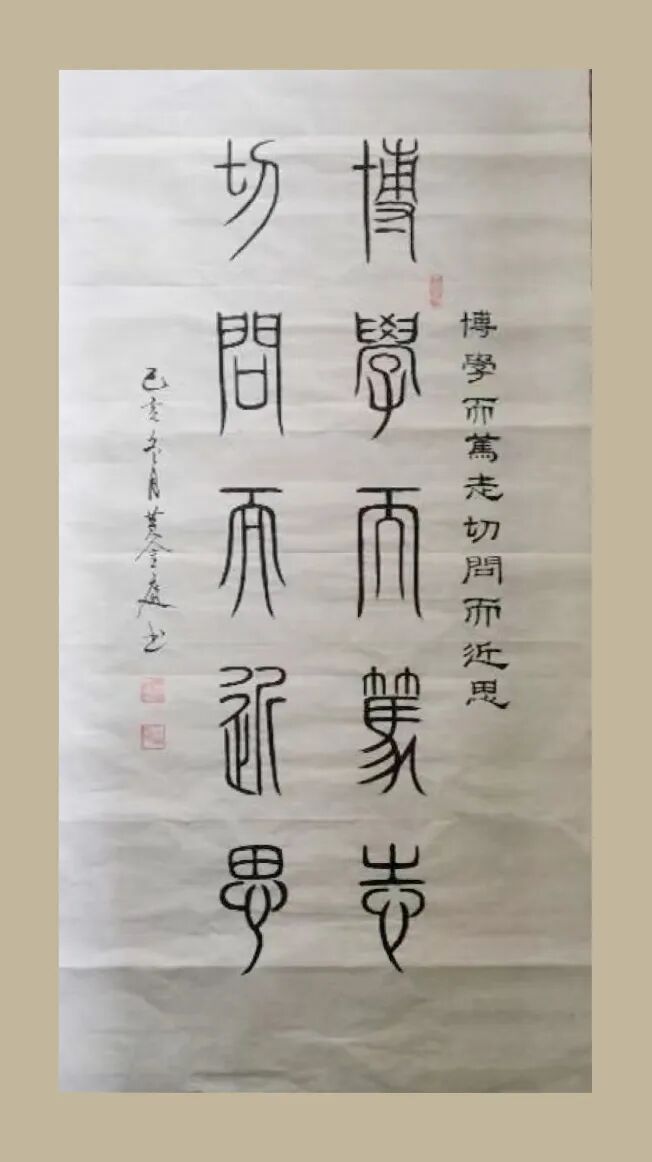 博學而篤志切問而近思
博學而篤志
切問而近思
己亥冬月黄金书